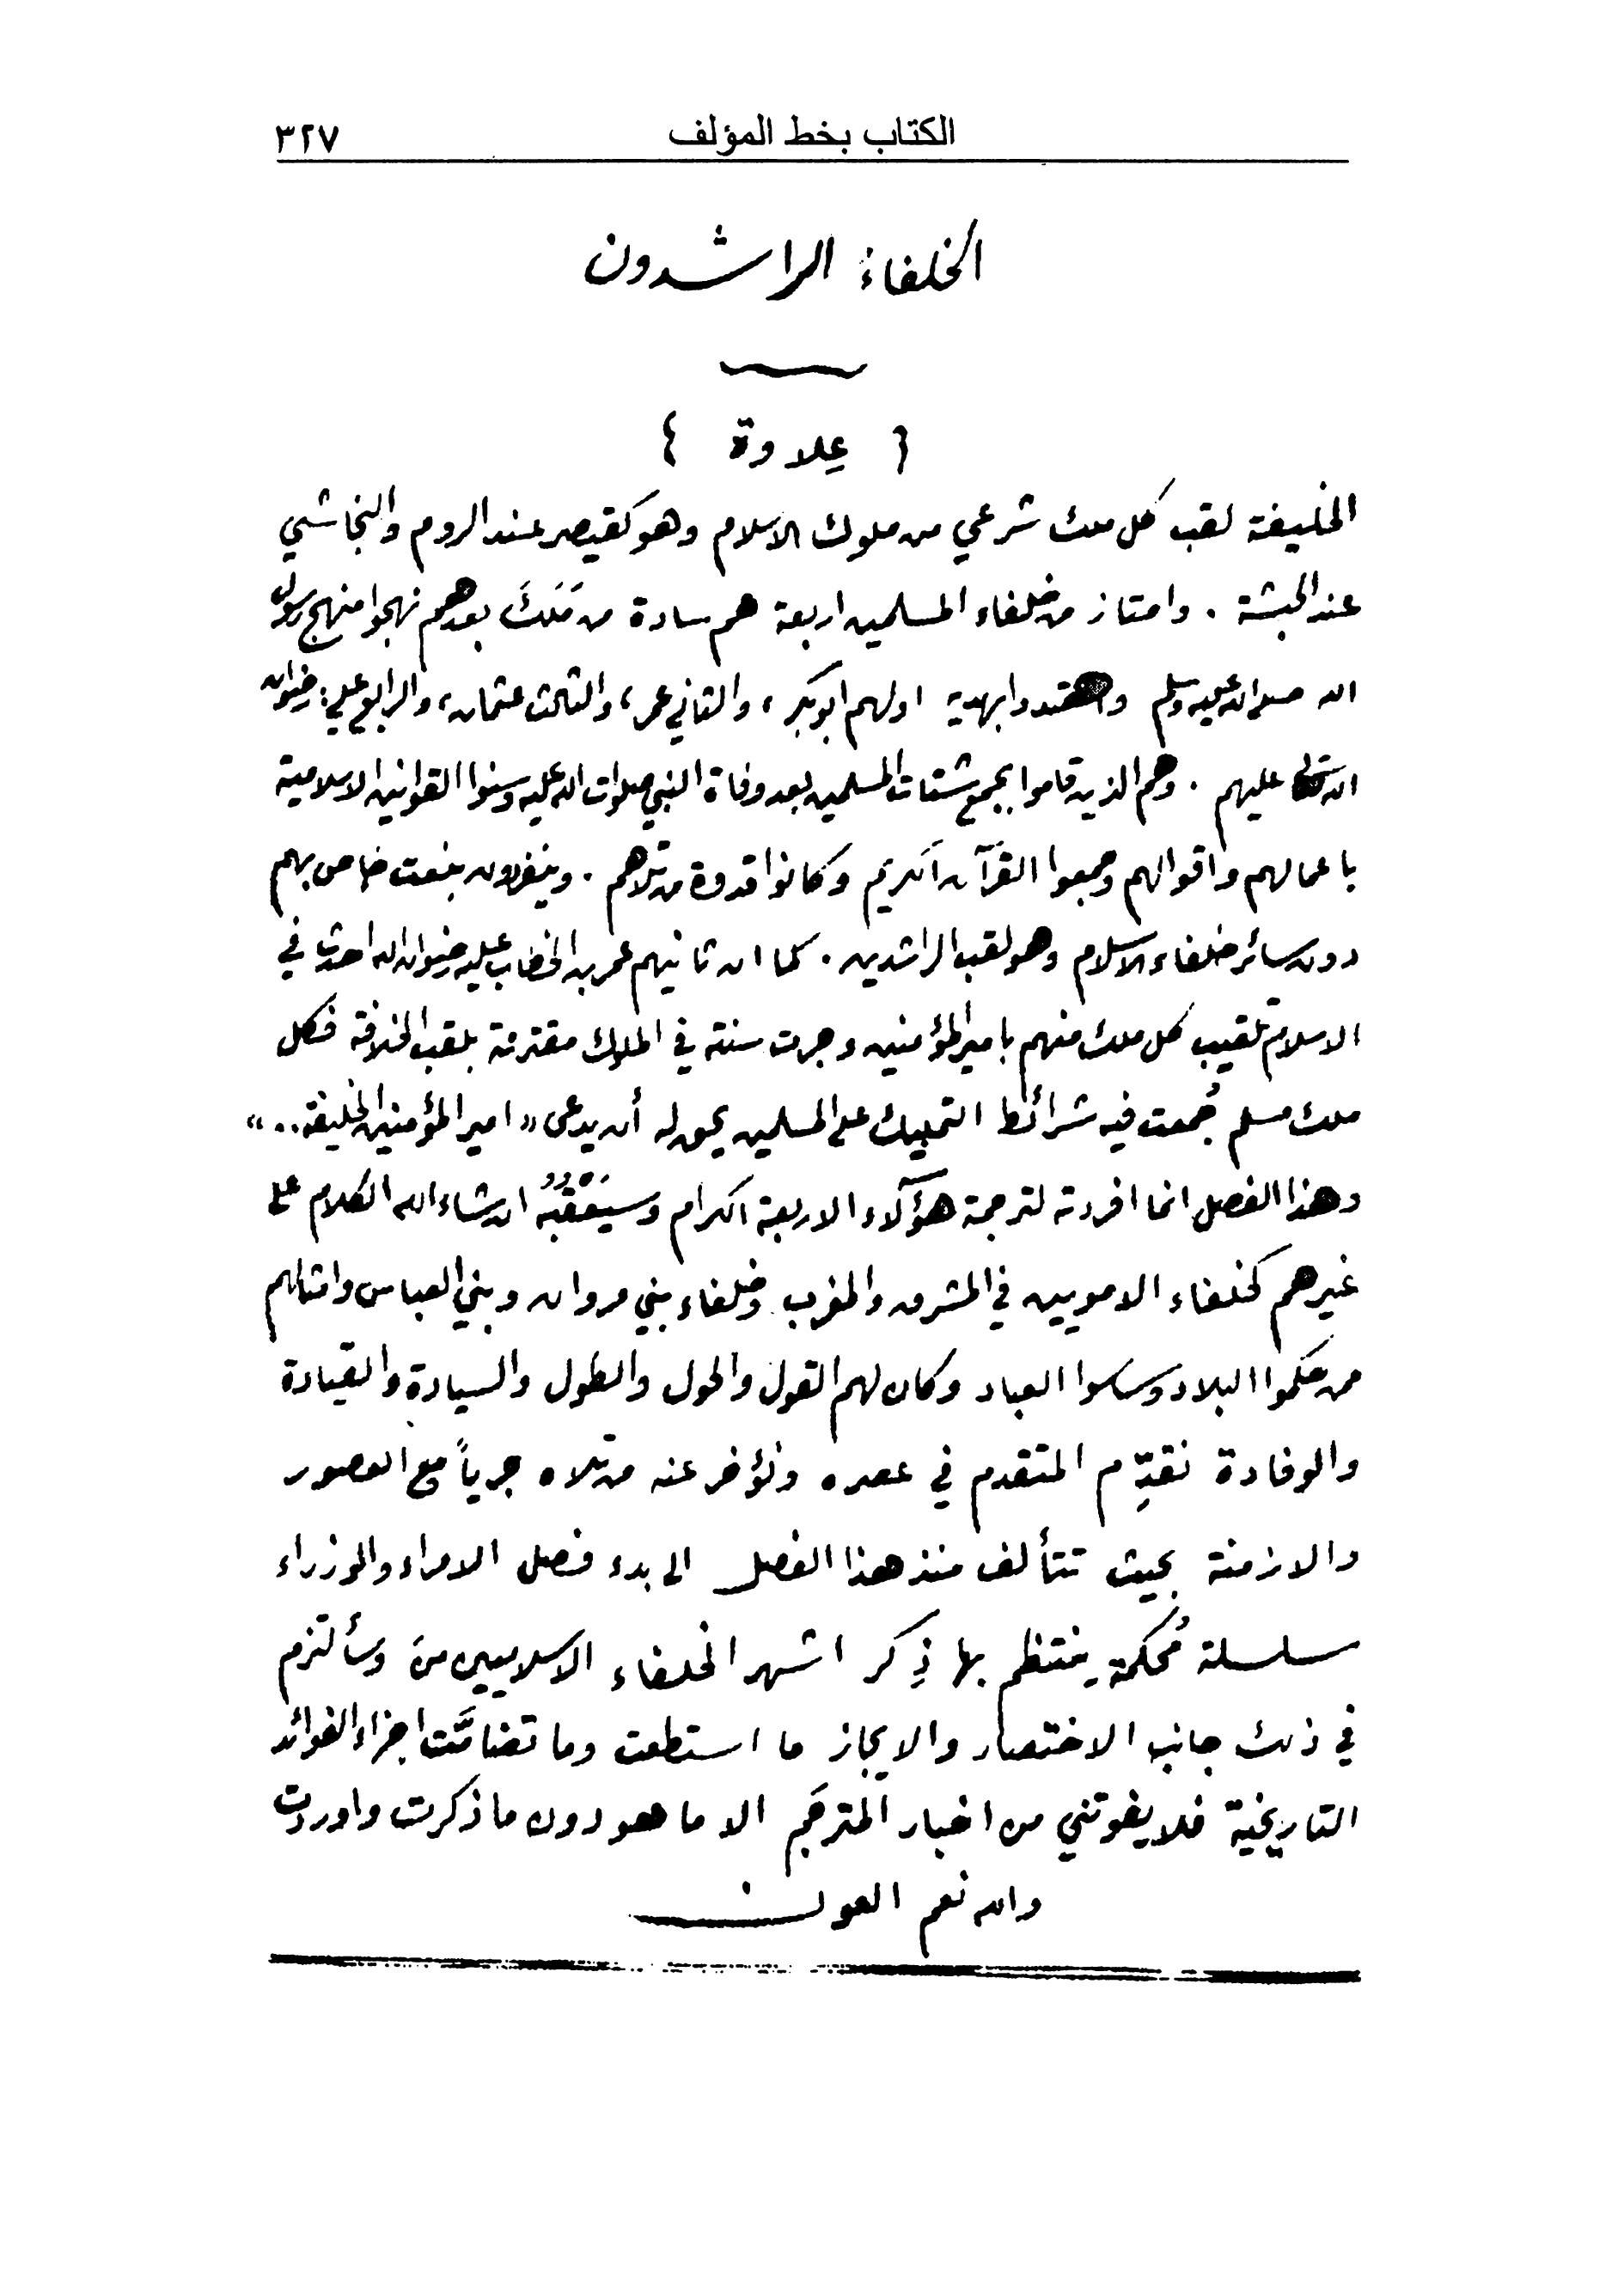 الكتاب بخط المؤلف ٣٢٧
الخلفاء الراشدون
{ عِلاوة }
الخليفة لقب كل ملك شرعي من ملوك الاسلام وهو كقيصر عند الروم والنجاشي
عند الحبشة . وامتاز من خلفاء المسلمين اربعة هم سادة من مَلَكَ بعدهم نهجوا منهج رسول
الله صلى الله عليه وسلم واهتدوا بهديه اولهم ابو بكر ، والثاني عمر ، والثالث عثمان ، والرابع علي : رضوان
الله تعالى عليهم . وهم الذين قاموا بجمع شتات المسلمين بعد وفاة النبي صلوات الله عليه وسنوا القوانين الاسلامية
باعمالهم واقوالهم وجمعوا القرآن الكريم وكانوا قدوة من تلاهم . وينفردون بنعت خاص بهم
دون سائر خلفاء الاسلام وهو لقب الراشدين . كما ان ثانيهم عمر بن الخطاب عليه رضوان الله احدث في
الاسلام تلقيب كل ملك منهم بامير المؤمنين وجرت سنته في الملوك مقترنة بلقب الخلافة فكل
ملك مسلم جُمعت فيه شرائط التمليك على المسلمين يحق له أن يدعى « امير المؤمنين الخليفة .. »
وهذا الفصل انما افردته لترجمة هؤلآء الاربعة الكرام وسيَعْقُبُه ان شاء الله الكلام على
غيرهم كخلفاء الامويين في المشرق والمغرب وخلفاء بني مروان وبني العباس وامثالهم
ممن حكموا البلاد وساسوا العباد وكان لهم القول والحول والطول والسيادة والقيادة
والوفادة نقدِّم المتقدم في عصره ونؤخر عنه من تلاه جرياً مع العصور
والازمنة بحيث تتألف منذ هذا الفصل الى بدء فصل الامراء والوزراء
سلسلة مُحكمة ينتظم بها ذِكر اشهر الخلفاء الاسلاميين وسألتزم
في ذلك جانب الاختصار والايجاز ما استطعت وما تضامَّت اجزاء الفوائد
التاريخية فلا يفوتني من اخبار المترجَم الا ما هو دون ما ذكرت واوردت
والله نعم العون